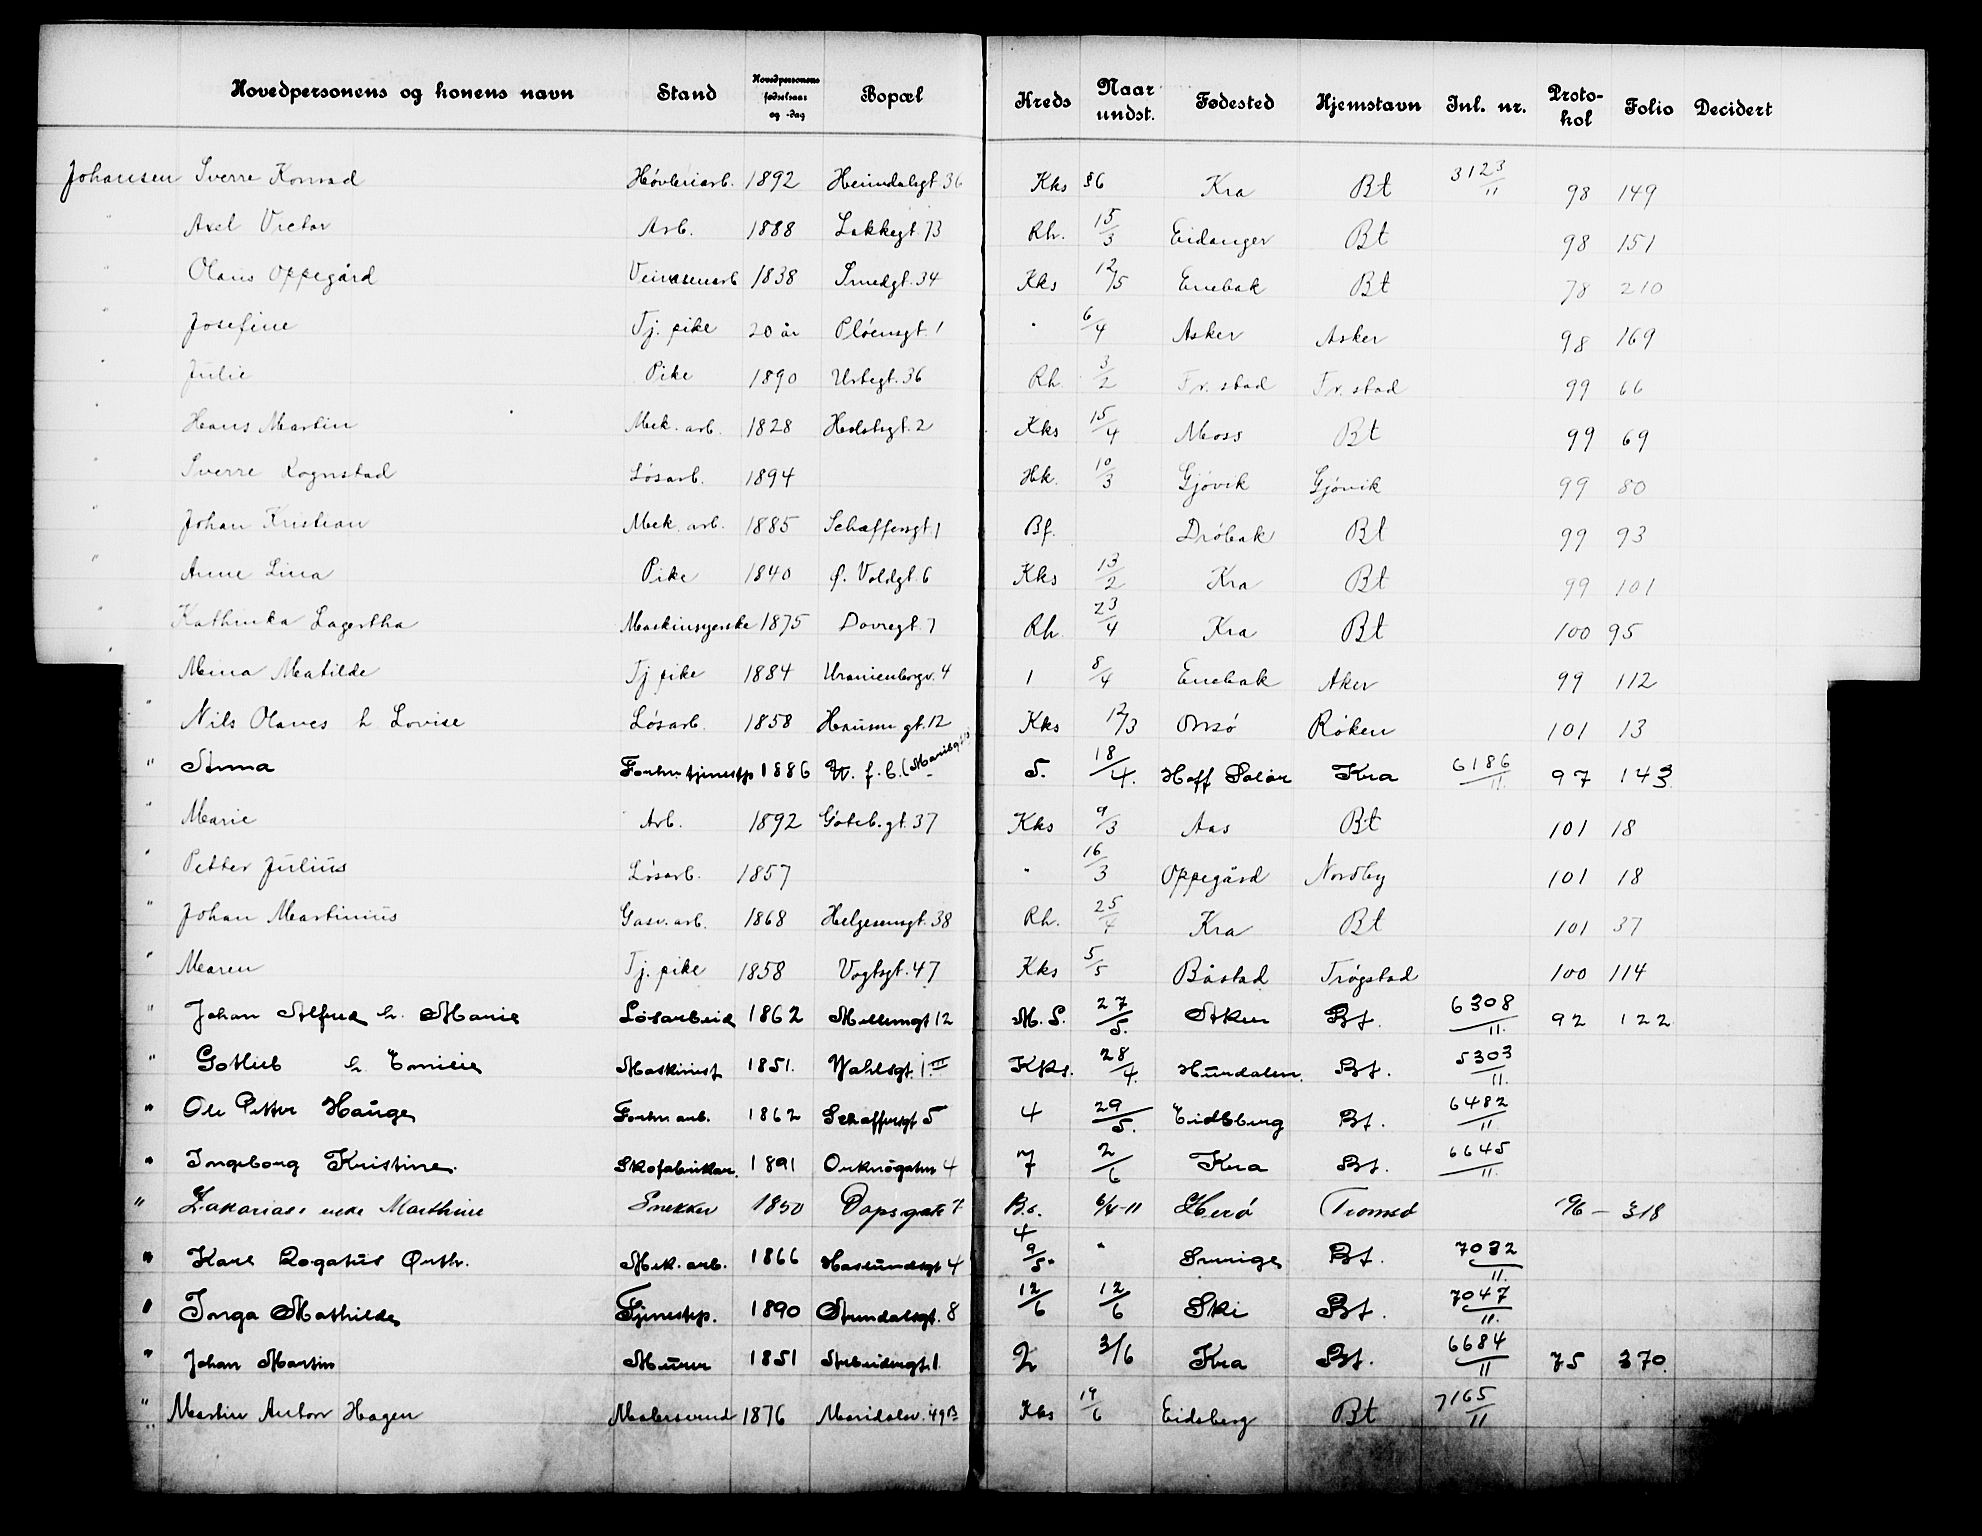 Hovedpersonens og konens navn | Stand | Hovedpersonens fødselsaar og -dag | Bopæl | Kreds | Naar undst. | Fødested | Hjemstavn | Inl. nr. | Protokol | Folio | Decidert
Johansen Sverre Konrad | Høvleriarb. | 1892 | Heimdalsgt 36 | Kks | 36 | Kra | Bt | 3123/11 | 98 | 149
" Axel Victor | Arb. | 1888 | Lakkegt 73 | Rh. | 15/3 | Eidanger | Bt | 98 | 151
" Olaus Oppegård | Veivæsenarb | 1838 | Smedgt. 34 | Kks | 12/5 | Enebak | Bt | 78 | 210
" Josefine | Tj. pike | 20 år | Pløensgt. 1 | " | 6/4 | Asker | Asker | 98 | 169
" Julie | Pike | 1890 | Urtegt. 36 | Rh. | 3/2 | Fr. stad | Fr. stad | 99 | 66
" Hans Martin | Mek. arb. | 1828 | Holstsgt. 2 | Kks | 15/4 | Moss | Bt | 99 | 69
" Sverre Rognstad | Løsarb. | 1894 | Hk. | 10/3 | Gjøvik | Gjøvik | 99 | 80
" Johan Kristian | Mek. arb. | 1885 | Schæffersgt 1 | Bf. | Drøbak | Bt | 99 | 93
" Anne Lina | Pike | 1840 | Ø. Voldgt. 6 | Kks | 13/2 | Kra | Bt | 99 | 101
" Kathinka Lagertha | Maskinsyerske | 1875 | Dovregt. 7 | Rh. | 23/4 | Kra | Bt | 100 | 95
Mina Matilde | Tj pike | 1884 | Uranienborgv. 4 | 1 | 8/4 | Enebak | Aker | 99 | 112
" Nils Olaves h Lovise | Løsarb. | 1858 | Hausm gt. 12 | Kks | 12/3 | Onsø | Røken | 101 | 13
" Anna | Forhn tjenestp | 1886 | U. f. b. | 5. | 18/4. | Hoff Solør | Kra | 6186/11. | 97 | 143
" Marie | Arb. | 1892 | Gøteb. gt. 37 | Kks | 9/3 | Aas | Bt | 101 | 18
" Petter Julius | Løsarb. | 1857 | " | 16/3 | Oppegård | Nordby | 101 | 18
" Johan Martinius | Gasv. arb. | 1868 | Helgesensgt. 38 | Rh. | 25/4 | Kra | Bt | 101 | 37
" Maren | Tj. pike | 1858 | Vogtsgt. 47 | Kks | 5/5 | Båstad | Trøgstad | 100 | 114
" Johan Alfred h. Marie | Løsarbeid | 1862 | Møllerngt 12 | M. S. | 27/5. | Aker | Bt. | 6308/11. | 92 | 122
" Gotlieb h. Emilie | Maskinist | 1851. | Wahlsgt. 1 II | KKs. | 28/4. | Hurdalen. | Bt. | 5303/11.
" Ole Petter Hauge | Forhn arb. | 1862 | Schaffersgt 5 | 4 | 29/5. | Eidsberg | Bt. | 6482/11
" Ingeborg Kristine. | Skofabrikar. | 1891 | Orknøgaten 4 | 7 | 2/6 | Kra | Bt. | 6645/11.
" Zakarias enke Marthine | Snekker | 1850 | Dopsgate 7 | B.s. | 6/4-11 | Herø | Tromsø | 96 — 318
" Karl Rogatus Orth. | Mek. arb. | 1866 | Haslundsgt 4 | 4 9/5. | " | Sverige | Bt. | 7032/11.
" Inga Mathilde | Tjenestp. | 1890 | Arendalsgt. 8 | 12/6 | 12/6 | Ski | Bt. | 7047/11.
" Johan Martin | Murer | 1851 | Arbeidergt. 1. | 2 | 3/6 | Kra | Bt. | 6684/11 | 75 | 370.
" Martin Anton Hagen | Malersvend | 1876 | Maridalsv. 49B | Kks | 19/6 | Eidsberg | Bt | 7165/11